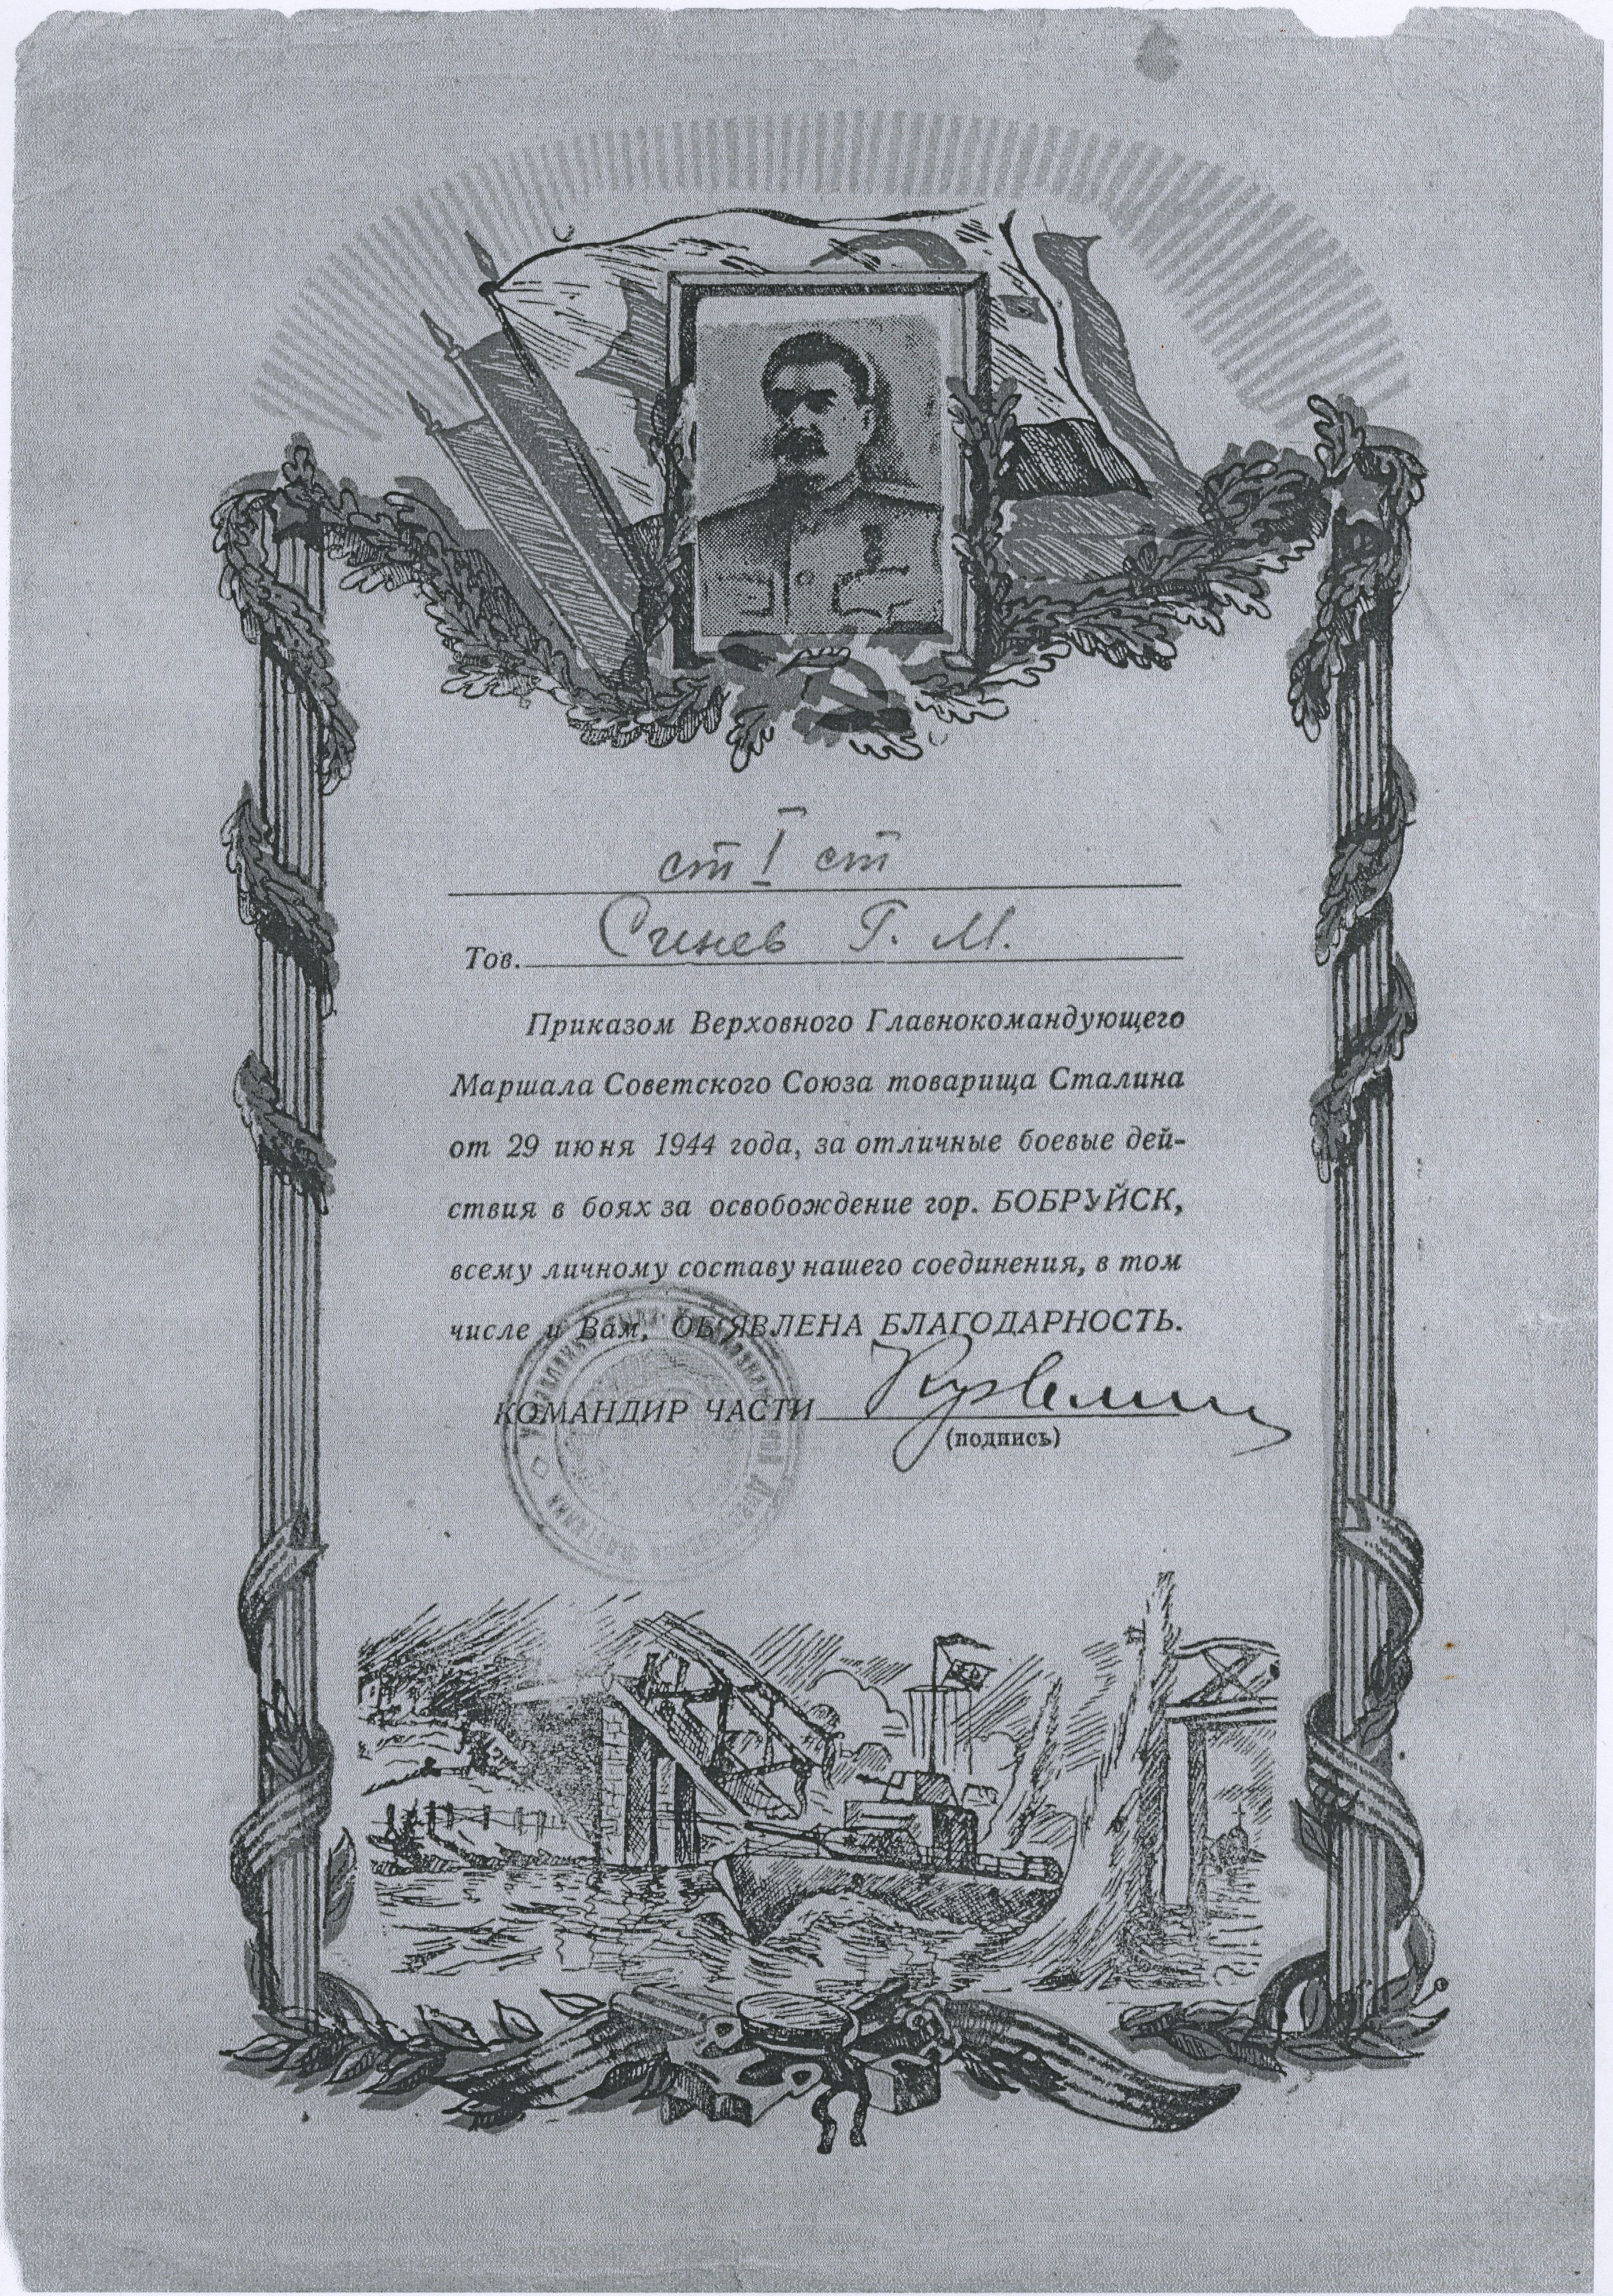 ст I ст
Тов. Синев Г. М.
Приказом Верховного Главнокомандующего
Маршала Советского Союза товарища Сталина
от 29 июня 1944 года, за отличные боевые дей-
ствия в боях за освобождение гор. БОБРУЙСК,
всему личному составу нашего соединения, в том
числе и Вам, ОБ'ЯВЛЕНА БЛАГОДАРНОСТЬ.
КОМАНДИР ЧАСТИ
(подпись)